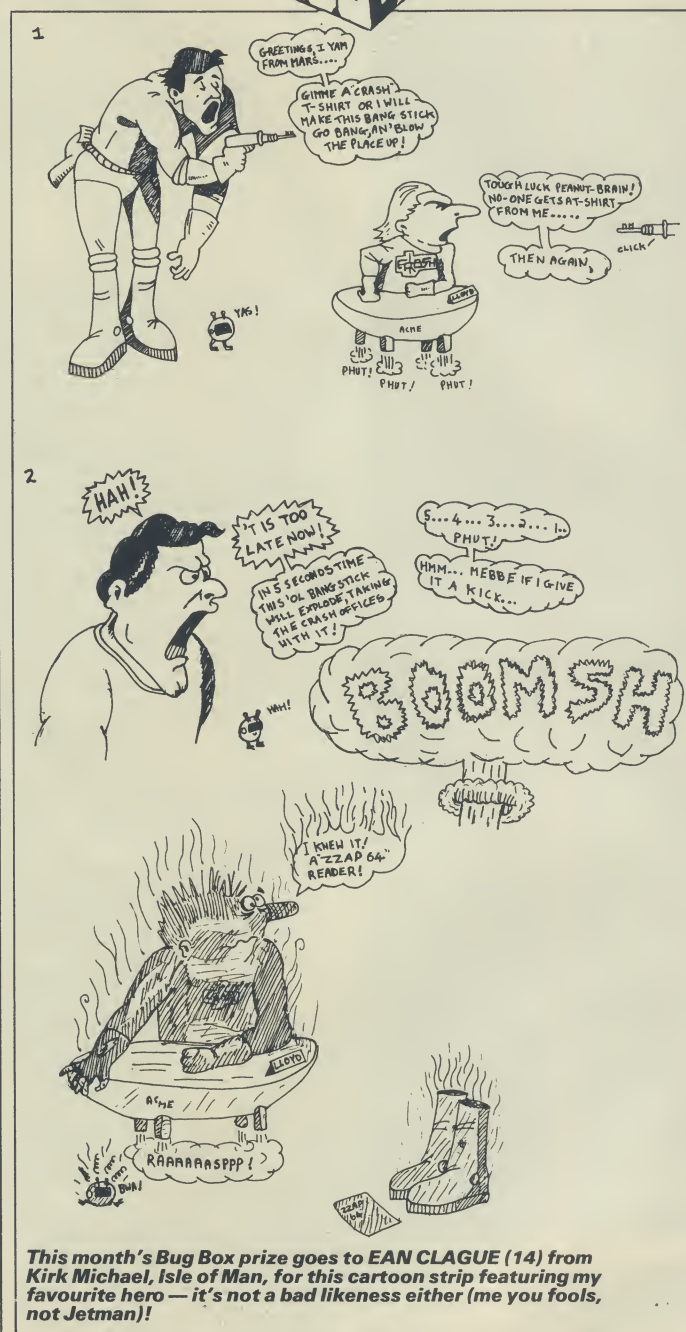 1
GREETINGS, I YAM
FROM MARS....
GIMME A "CRASH"
T-SHIRT OR I WILL
MAKE THIS BANG STICK
GO BANG, AN' BLOW
THE PLACE UP!
YAS!
TOUGH LUCK PEANUT-BRAIN!
NO-ONE GETS A T-SHIRT
FROM ME.....
THEN AGAIN,
CLICK
CRASH
LLOYD
ACME
PHUT!
PHUT!
PHUT!
2
HAH!
'T IS TOO
LATE NOW!
IN 5 SECONDS TIME
THIS 'OL BANG STICK
WILL EXPLODE, TAKING
THE CRASH OFFICES
WITH IT!
HAH!
5...4...3...2...1..
PHUT!
HMM... MEBBE IF I GIVE
IT A KICK...
BOOMSH
I KNEW IT!
A "ZZAP 64"
READER!
LLOYD
ACME
RAAAAAASPPP!
BWA!
ZZAP
64
This month's Bug Box prize goes to EAN CLAGUE (14) from
Kirk Michael, Isle of Man, for this cartoon strip featuring my
favourite hero — it's not a bad likeness either (me you fools,
not Jetman)!